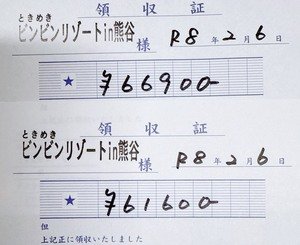 領収証
ときめき
ビンビンリゾートin熊谷様 R8年2月6日
★ ¥66900-
領収証
ときめき
ビンビンリゾートin熊谷様 R8年2月6日
★ ¥61600-
但
上記正に領収いたしました